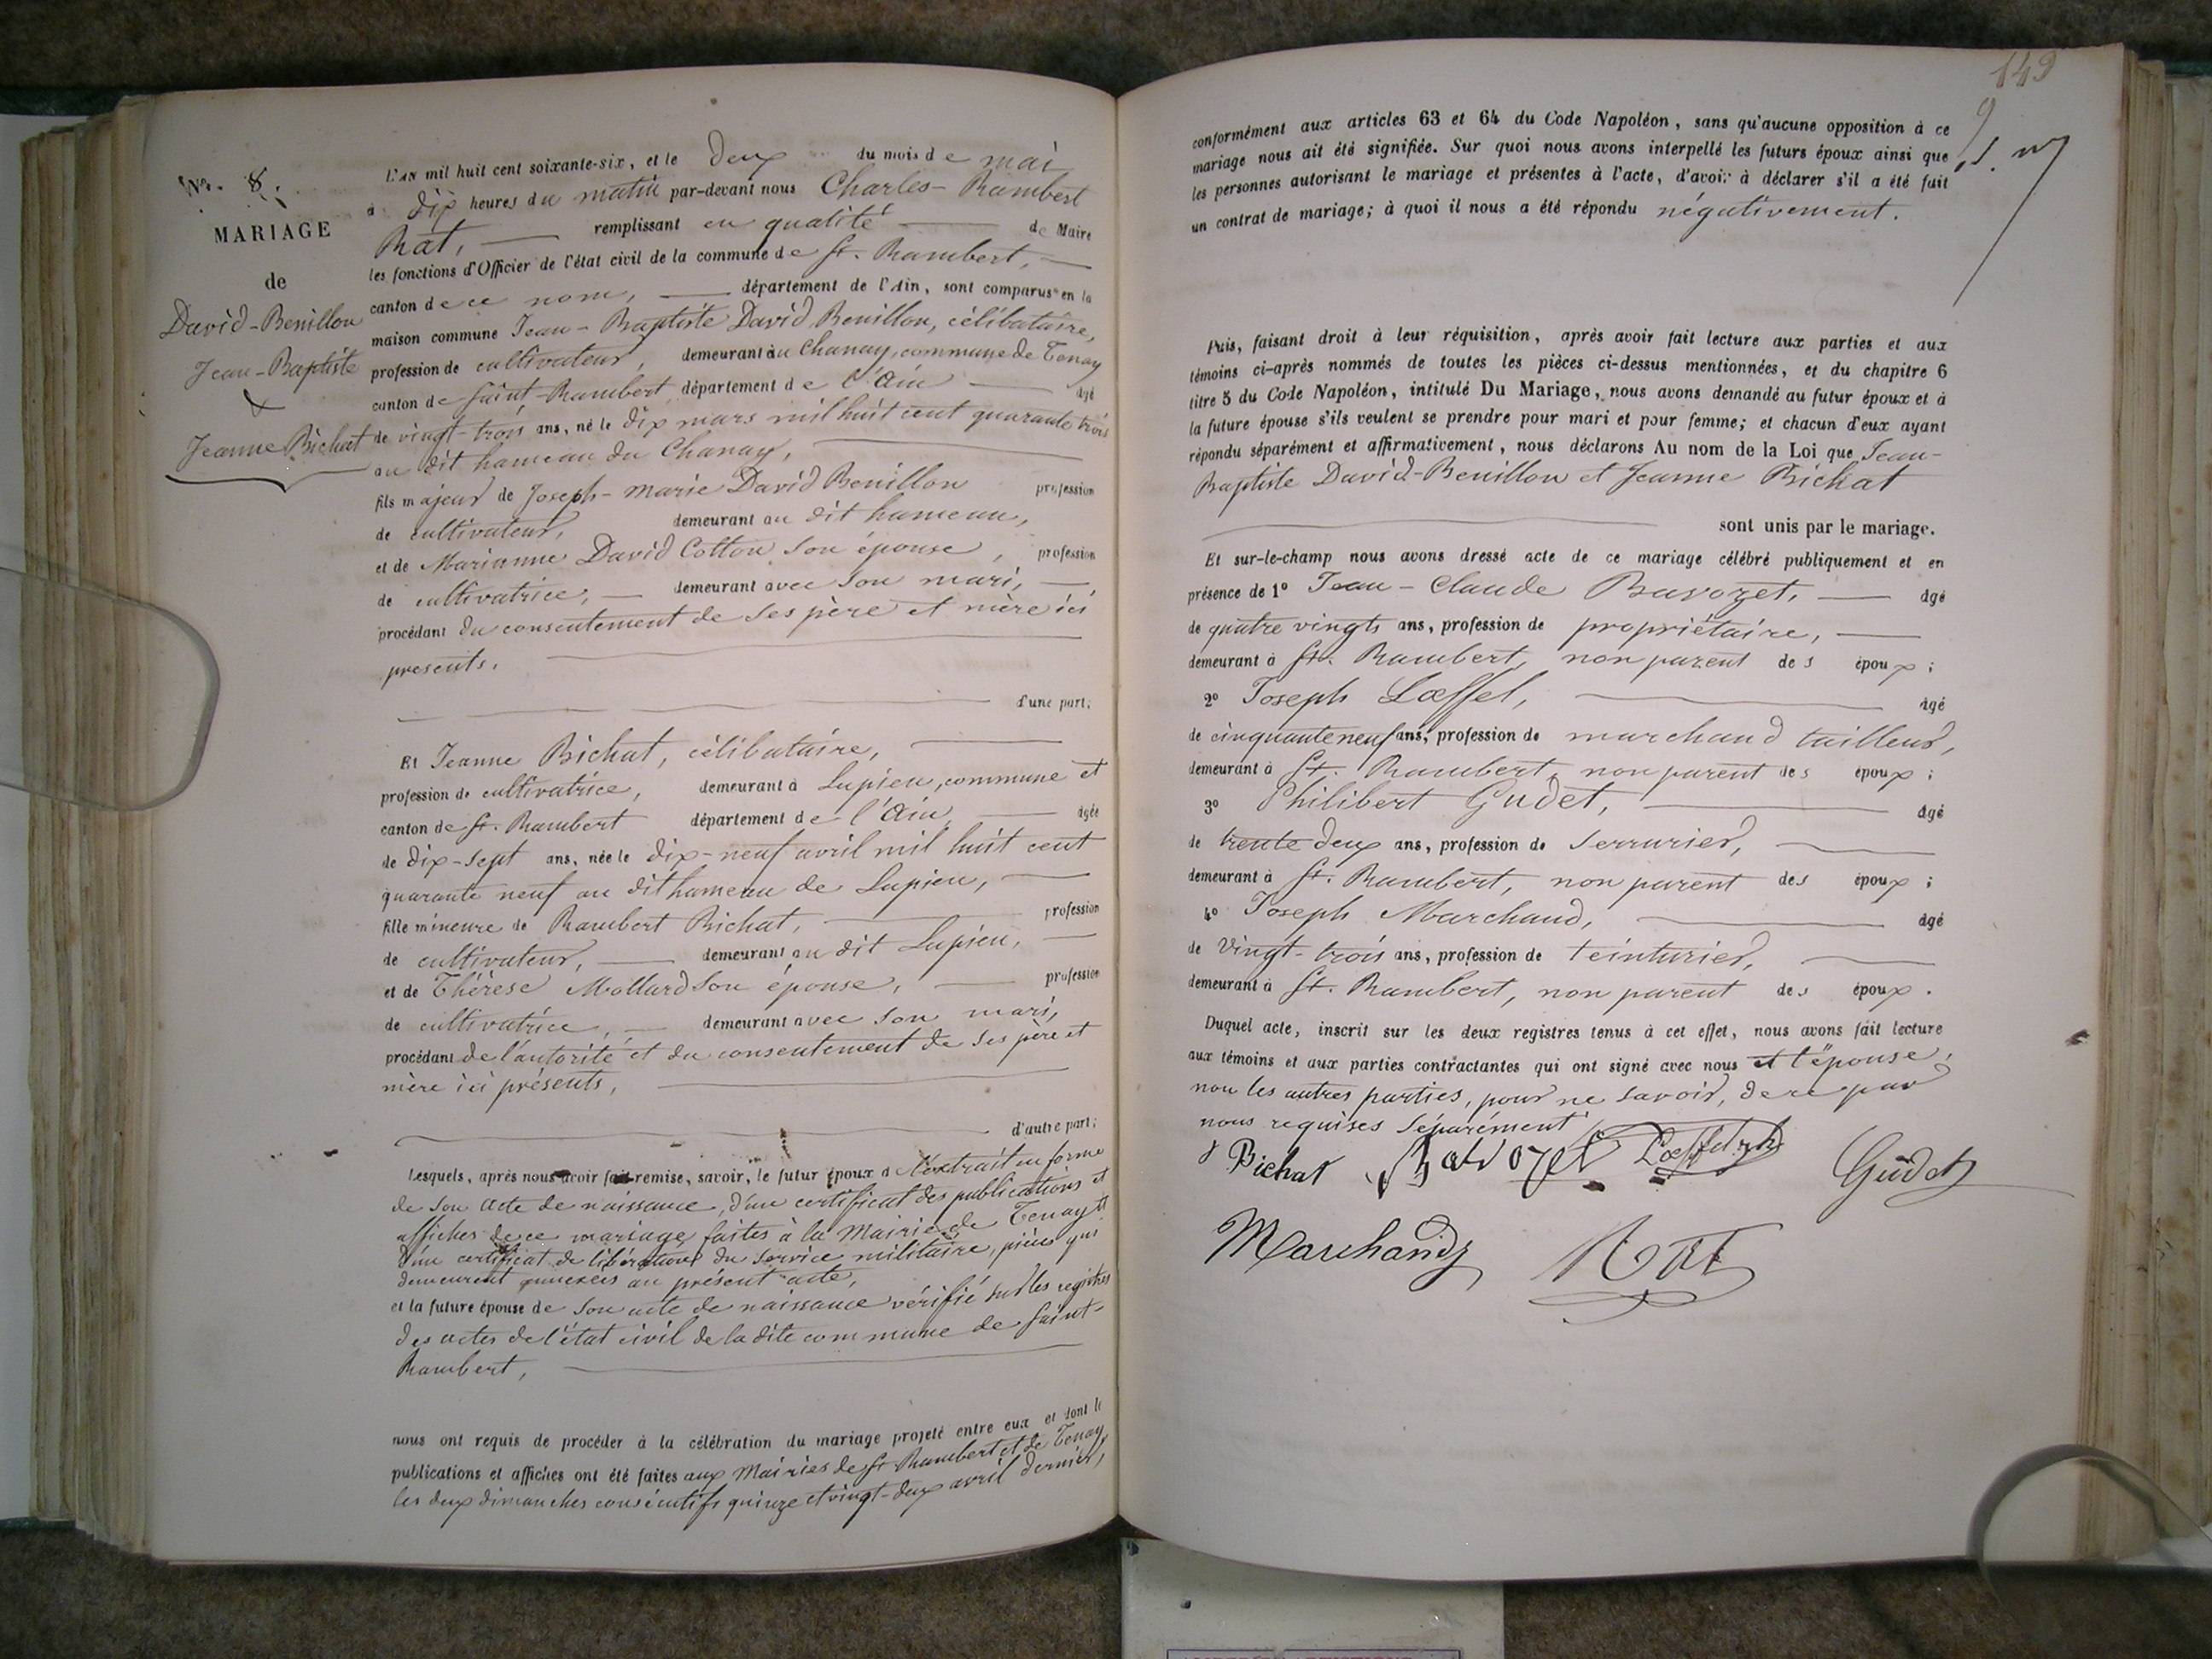 No. 8.
MARIAGE
de
David-Benillon
Jean-Baptiste
&
Jeanne Bichat
L'AN mil huit cent soixante-six, et le deux du mois de mai
à dix heures du matin par-devant nous Charles-Rambert
Rat, remplissant en qualité de Maire
les fonctions d'Officier de l'état civil de la commune de St. Rambert,
canton de ce nom, département de l'Ain, sont comparus en la
maison commune Jean-Baptiste David Benillon, célibataire,
profession de cultivateur, demeurant au Chanay, commune de Tenay
canton de Saint-Rambert département de l'Ain âgé
de vingt-trois ans, né le dix mars mil huit cent quarante trois
au dit hameau du Chanay,
fils majeur de Joseph-Marie David Benillon profession
de cultivateur, demeurant au dit hameau,
et de Marianne David Cotton son épouse, profession
de cultivatrice, demeurant avec son mari,
procédant du consentement de ses père et mère ici
présents.
d'une part;
Et Jeanne Bichat, célibataire,
profession de cultivatrice, demeurant à Lupieu, commune et
canton de St. Rambert département de l'Ain, âgée
de dix-sept ans, née le dix-neuf avril mil huit cent
quarante neuf au dit hameau de Lupieu,
fille mineure de Rambert Bichat, profession
de cultivateur, demeurant au dit Lupieu,
et de Thérèse Mollard son épouse, profession
de cultivatrice, demeurant avec son mari,
procédant de l'autorité et du consentement de ses père et
mère ici présents,
d'autre part;
Lesquels, après nous avoir fait remise, savoir, le futur époux de l'extrait en forme
de son acte de naissance, d'un certificat des publications et
affiches de ce mariage faites à la Mairie de Tenay et
d'un certificat de libération du service militaire, pièces qui
demeurent annexées au présent acte,
et la future épouse de son acte de naissance vérifié sur les registres
des actes de l'état civil de la dite commune de Saint-
Rambert,
nous ont requis de procéder à la célébration du mariage projeté entre eux et dont le
publications et affiches ont été faites aux Mairies de St Rambert et de Tenay
les deux dimanches consécutifs quinze et vingt-deux avril dernier,
149
conformément aux articles 63 et 64 du Code Napoléon, sans qu'aucune opposition à ce
mariage nous ait été signifiée. Sur quoi nous avons interpellé les futurs époux ainsi que
les personnes autorisant le mariage et présentes à l'acte, d'avoir à déclarer s'il a été fait
un contrat de mariage; à quoi il nous a été répondu négativement.
Puis, faisant droit à leur réquisition, après avoir fait lecture aux parties et aux
témoins ci-après nommés de toutes les pièces ci-dessus mentionnées, et du chapitre 6
titre 5 du Code Napoléon, intitulé Du Mariage, nous avons demandé au futur époux et à
la future épouse s'ils veulent se prendre pour mari et pour femme; et chacun d'eux ayant
répondu séparément et affirmativement, nous déclarons Au nom de la Loi que Jean-
Baptiste David-Benillon et Jeanne Bichat
sont unis par le mariage.
Et sur-le-champ nous avons dressé acte de ce mariage célébré publiquement et en
présence de 1º Jean-Claude Bavozet, âgé
de quatre vingts ans, profession de propriétaire,
demeurant à St. Rambert, non parent des époux;
2º Joseph Lœffel, âgé
de cinquante neuf ans, profession de marchand tailleur,
demeurant à St. Rambert, non parent des époux;
3º Philibert Gudet, âgé
de trente deux ans, profession de serrurier,
demeurant à St. Rambert, non parent des époux;
4º Joseph Marchand, âgé
de vingt-trois ans, profession de teinturier,
demeurant à St. Rambert, non parent des époux.
Duquel acte, inscrit sur les deux registres tenus à cet effet, nous avons fait lecture
aux témoins et aux parties contractantes qui ont signé avec nous et l'épouse,
non les autres parties, pour ne savoir, de ce par
nous requises séparément
J Bichat Bavozet Lœffel Gudet
Marchand Rat